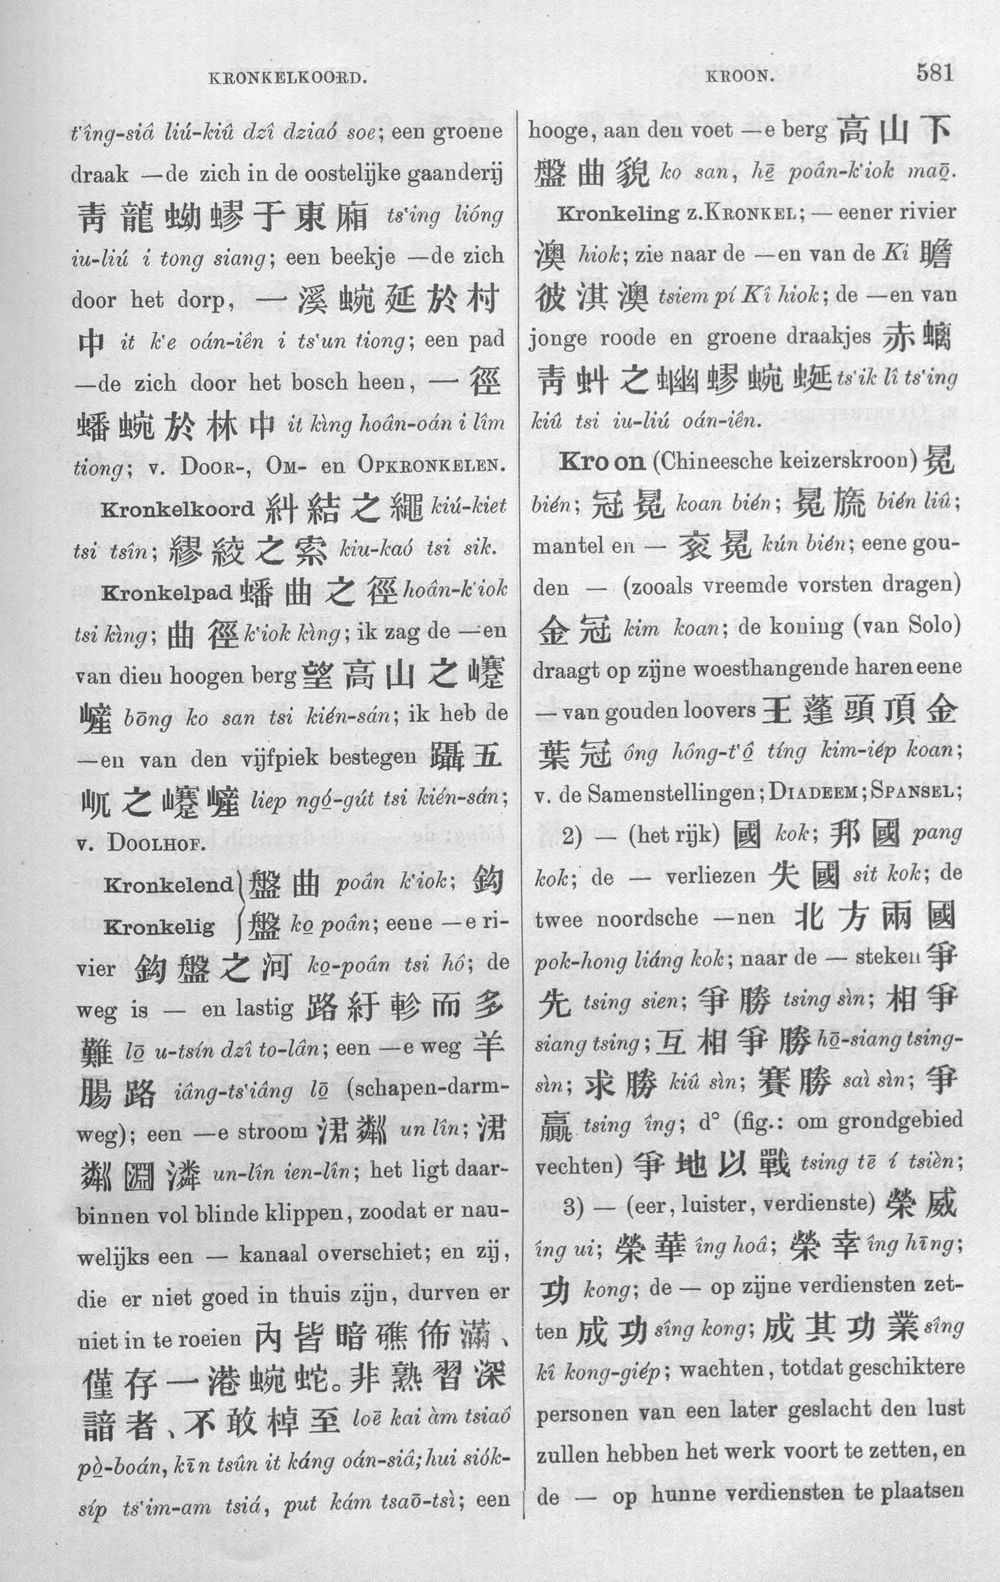 KRONKELKOORD.
KROON.
581
t'îng-siâ liú-kiû dzî dziaó soe; een groene
draak —de zich in de oostelijke gaanderij
靑龍蚴蟉于東廂 ts'ing lióng
iu-liú i tong siang; een beekje —de zich
door het dorp, 一溪蜿延於村
中 it k'e oán-iên i ts'un tiong; een pad
—de zich door het bosch heen, 一徑
蟠蜿於林中 it kìng hoân-oán i lîm
tiong; v. DOOR-, OM- en OPKRONKELEN.
Kronkelkoord 糾結之繩 kiú-kiet
tsi tsîn; 繆絞之索 kiu-kaó tsi sik.
Kronkelpad 蟠曲之徑 hoân-k'iok
tsi kìng; 曲徑 k'iok kìng; ik zag de —en
van dien hoogen berg 望高山之㠾
嵼 bōng ko san tsi kién-sán; ik heb de
—en van den vijfpiek bestegen 躡五
岏之㠾嵼 liep ngó-gút tsi kién-sán;
v. DOOLHOF.
Kronkelend) 盤曲 poân k'iok; 鈎
Kronkelig ) 盤 ko poân; eene —e ri-
vier 鈎盤之河 ko-poân tsi hô; de
weg is — en lastig 路紆軫而多
難 lō u-tsín dzî to-lân; een —e weg 羊
腸路 iâng-ts'iâng lō (schapen-darm-
weg); een —e stroom 涒粼 un lîn; 涒
粼㘤潾 un-lîn ien-lîn; het ligt daar-
binnen vol blinde klippen, zoodat er nau-
welijks een — kanaal overschiet; en zij,
die er niet goed in thuis zijn, durven er
niet in te roeien 內皆暗礁佈滿、
僅存一港蜿蛇。非熟習深
諳者、不敢棹至 loē kai àm tsiaó
pò-boán, kīn tsûn it káng oán-siâ; hui siók-
síp ts'im-am tsiá, put kám tsaō-tsì; een
hooge, aan den voet —e berg 高山下
盤曲貌 ko san, hē poân-k'iok maō.
Kronkeling z. KRONKEL; — eener rivier
澳 hiok; zie naar de —en van de Ki 瞻
彼淇澳 tsiem pí Kî hiok; de —en van
jonge roode en groene draakjes 赤螭
靑虯之蚴蟉蜿蜒 ts'ik lî ts'ing
kiû tsi iu-liú oán-iên.
Kroon (Chineesche keizerskroon) 冕
bién; 冠冕 koan bién; 冕旒 bién liû;
mantel en — 袞冕 kún bién; eene gou-
den — (zooals vreemde vorsten dragen)
金冠 kim koan; de koning (van Solo)
draagt op zijne woesthangende haren eene
— van gouden loovers 王蓬頭頂金
葉冠 ông hông-t'ô tíng kim-iép koan;
v. de Samenstellingen; DIADEEM; SPANSEL;
2) — (het rijk) 國 kok; 邦國 pang
kok; de — verliezen 失國 sit kok; de
twee noordsche —nen 北方兩國
pok-hong liáng kok; naar de — steken 爭
先 tsing sien; 爭勝 tsing sìn; 相爭
siang tsing; 互相爭勝 hō-siang tsing-
sìn; 求勝 kiû sìn; 賽勝 saì sìn; 爭
贏 tsing îng; d° (fig.: om grondgebied
vechten) 爭地以戰 tsing tē í tsièn;
3) — (eer, luister, verdienste) 榮威
îng ui; 榮華 îng hoâ; 榮幸 îng hīng;
功 kong; de — op zijne verdiensten zet-
ten 成功 sîng kong; 成其功業 sîng
kî kong-giép; wachten, totdat geschiktere
personen van een later geslacht den lust
zullen hebben het werk voort te zetten, en
de — op hunne verdiensten te plaatsen